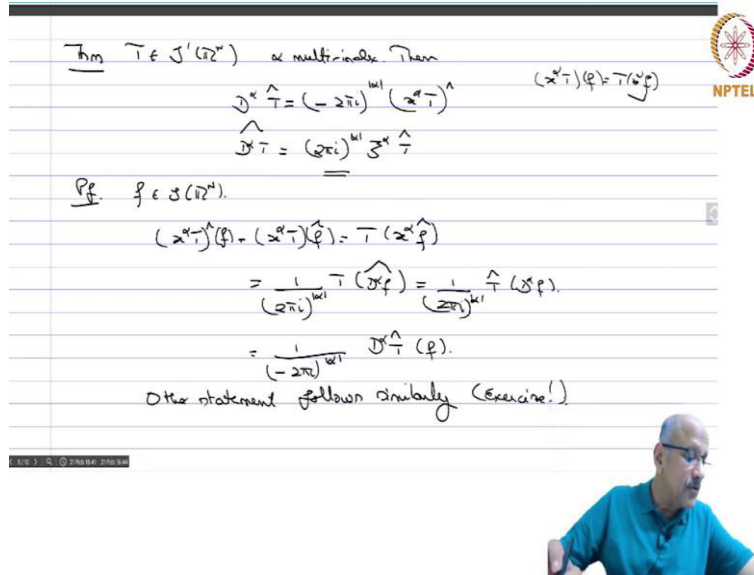 Thm T ∈ S'(ℝᴺ) α multi-index. Then
(x^α T)(φ) = T(x^α φ)
NPTEL
D^α T̂ = (-2πi)^{|α|} (x^α T)^
(D^α T)^ = (2πi)^{|α|} ξ^α T̂
Pf. φ ∈ S(ℝᴺ).
(x^α T)^(φ) = (x^α T)(φ̂) = T(x^α φ̂)
= 1/(2πi)^{|α|} T((D^α φ)^) = 1/(2πi)^{|α|} T̂(D^α φ).
= 1/(-2πi)^{|α|} D^α T̂(φ).
Other statement follows similarly (Exercise!).